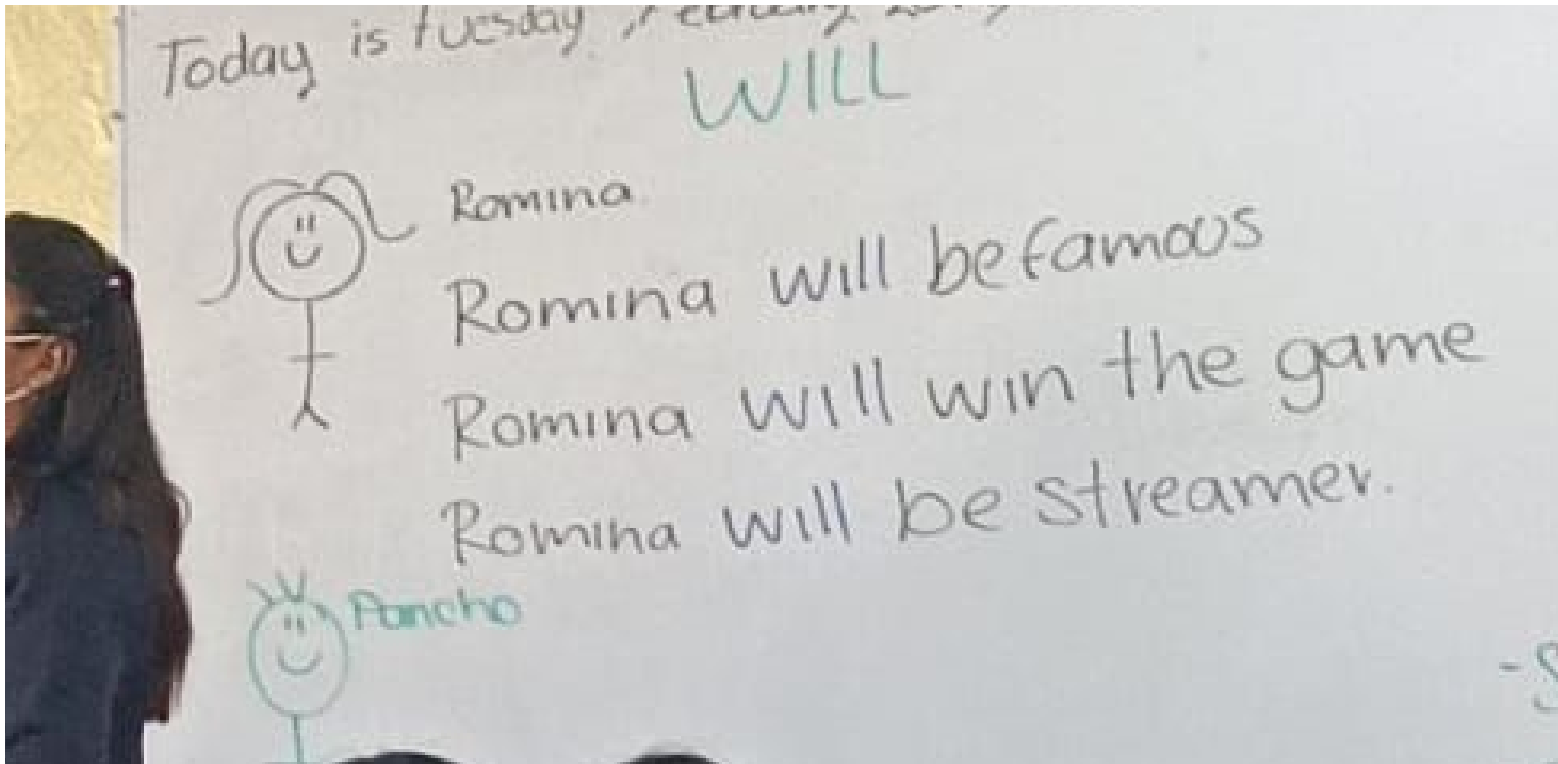 Today is tuesday
WILL
Romina.
Romina will be famous
Romina will win the game
Romina will be streamer.
Pancho